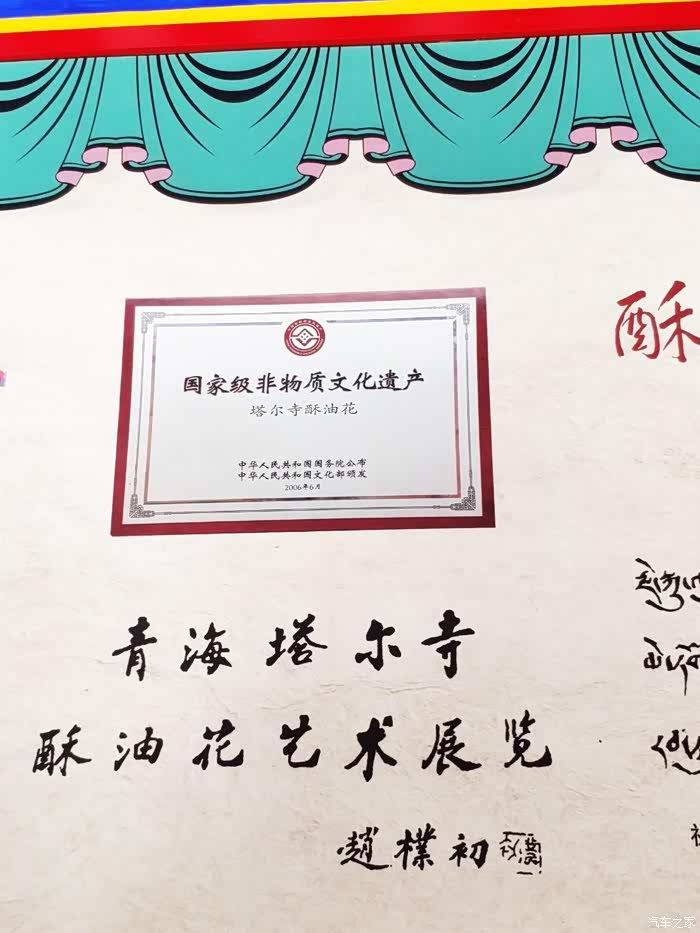 酥
国家级非物质文化遗产
塔尔寺酥油花
中华人民共和国国务院公布
中华人民共和国文化部颁发
2006年6月
青海塔尔寺
酥油花艺术展览
趙樸初
汽车之家